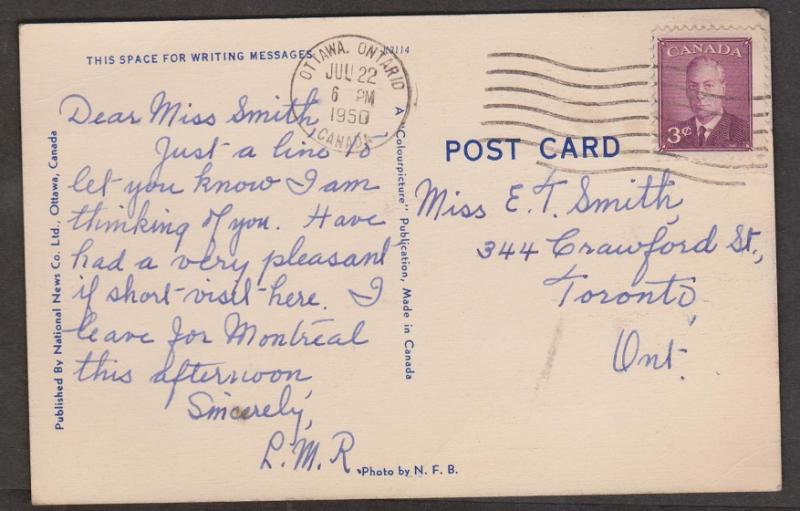 THIS SPACE FOR WRITING MESSAGES
OTTAWA, ONTARIO
JUL 22
6 PM
1950
CANADA
CANADA
3¢
Dear Miss Smith,
Just a line to
let you know I am
thinking of you. Have
had a very pleasant
if short visit here. I
leave for Montréal
this afternoon,
Sincerely,
L.M.R.
POST CARD
Miss E. T. Smith,
344 Crawford St.,
Toronto,
Ont.
Published By National News Co. Ltd., Ottawa, Canada
A "Colourpicture" Publication, Made in Canada
Photo by N. F. B.